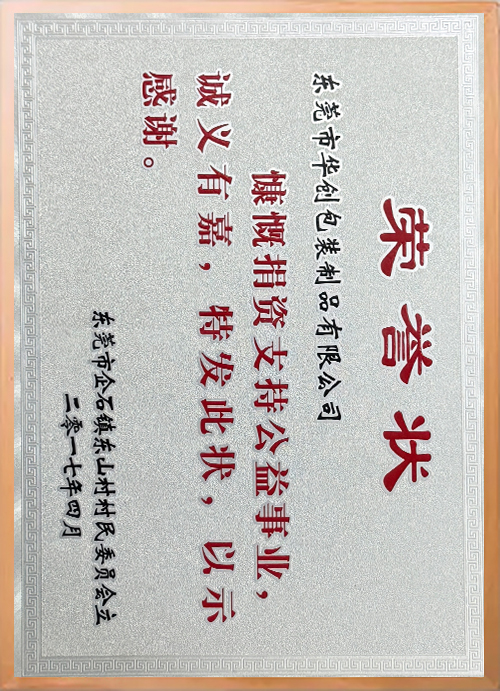 荣誉状
东莞市华创包装制品有限公司
慷慨捐资支持公益事业，
诚义有嘉，特发此状，以示
感谢。
东莞市企石镇东山村村民委员会立
二零一七年四月